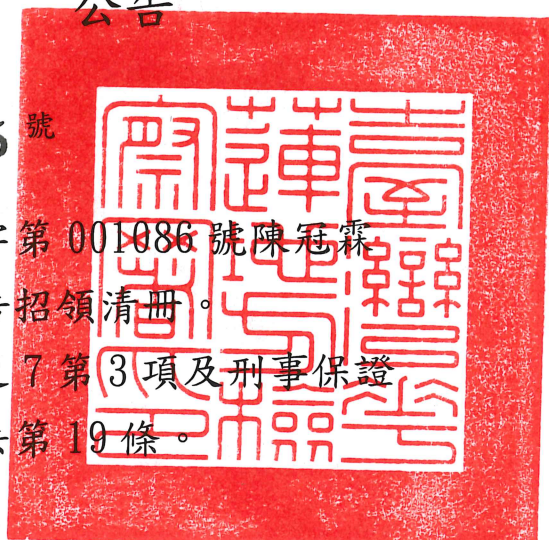 公告
號
第 001086 號陳冠霖
招領清冊。
7 第 3 項及刑事保證
第 19 條。
臺灣花
蓮地方檢
察署印